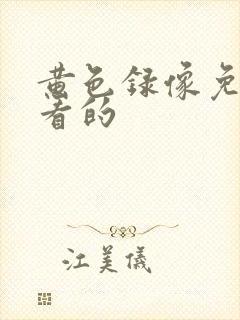 黄色录像免
看的
江美儀